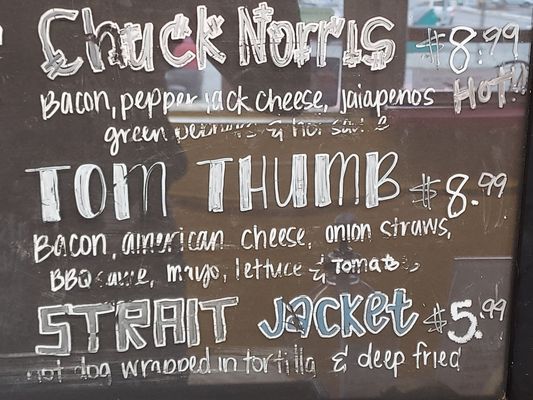 Chuck Norris $8.99
Bacon, pepper jack cheese, jalapenos HOT!!
green peppers & hot sauce
TOM THUMB $8.99
Bacon, american cheese, onion straws,
BBQ sauce, mayo, lettuce & Tomato
STRAIT Jacket $5.99
Hot dog wrapped in tortilla & deep fried